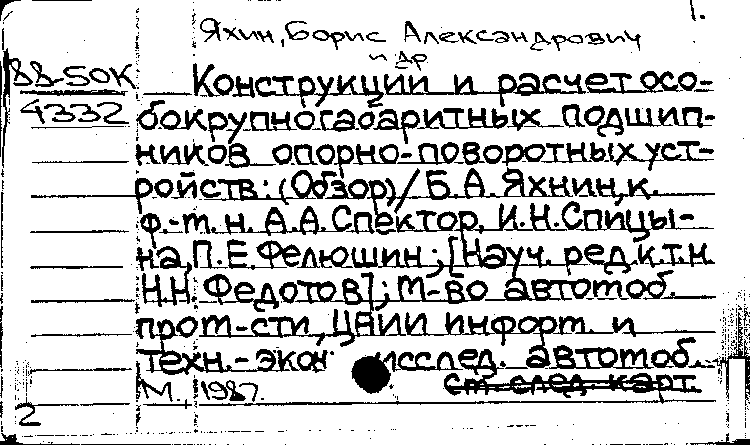 1.
Яхин, Борис Александрович
и др
88-50К
4332
Конструкции и расчет осо-
бокрупногабаритных подшип-
ников опорно-поворотных уст-
ройств: (Обзор) / Б.А. Яхнин, к.
ф.-т. н. А.А. Спектор, И.Н. Спицы-
на, П.Е. Фелюшин; [Науч. ред. к.т.н
Н.Н. Федотов]; М-во автомоб.
пром-сти, ЦНИИ информ. и
техн.-экон исслед. автомоб.
М., 1987.
ст. след. карт.
2